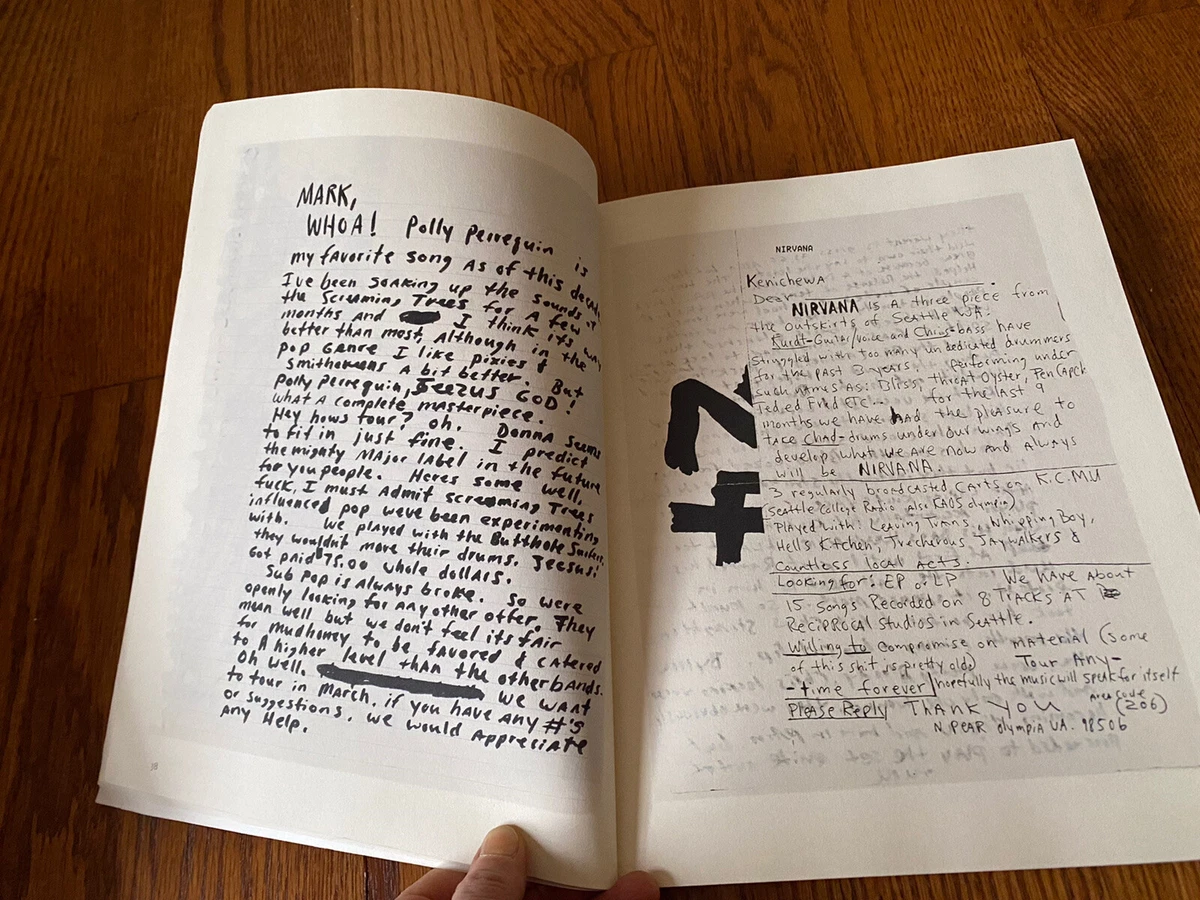 MARK,
WHOA! Polly Perrequin is
my favorite song As of this decade
I've been soaking up the sounds of
the Screaming Trees for a few
months and I think its way
better than most, Although in the
pop Genre I like pixies &
Smithereens A bit better. But
Polly perrequin, Jeezus GOD!
what A complete masterpiece.
Hey hows tour? oh. Donna seems
to fit in just fine. I predict
the mighty MAjor label in the future
for you people. Heres some well,
fuck, I must Admit screaming Trees
influenced pop weve been experimenting
with. we played with the Butthole Surfers.
they wouldn't move their drums. Jeesus!
Got paid 75.00 whole dollars.
Sub Pop is Always broke. So were
openly looking for any other offer, They
mean well but we don't feel its fair
for mudhoney to be favored & catered
to A higher level than the other bands.
Oh well. we want
to tour in March, if you have Any #'s
or suggestions, we would Appreciate
Any Help.
NIRVANA
Kenichewa
Dear
NIRVANA is a three piece from
the outskirts of Seattle WA.
Kurdt-Guitar/voice and Chris-bass have
struggled with too many un dedicated drummers
for the past 3 years, performing under
such names as: Bliss, throat Oyster, Pen Cap Chew
Ted ed Fred ETC... for the last 9
months we have had the pleasure to
take Chad-drums under our wings and
develop what we are now and always
will be NIRVANA.
3 regularly broadcasted carts on K.C.M.U
(Seattle College Radio Also KAOS olympia)
Played with: Leaving Trains, Whipping Boy,
Hells Kitchen, Trecherous Jaywalkers &
countless local Acts.
Looking for: EP or LP We have About
15 Songs Recorded on 8 Tracks AT
Reciprocal Studios in Seattle.
Willing to compromise on material (some
of this shit is pretty old) Tour Any-
-time forever hopefully the music will speak for itself
Please Reply THANK YOU AREA CODE
(206)
N. PEAR olympia WA. 98506